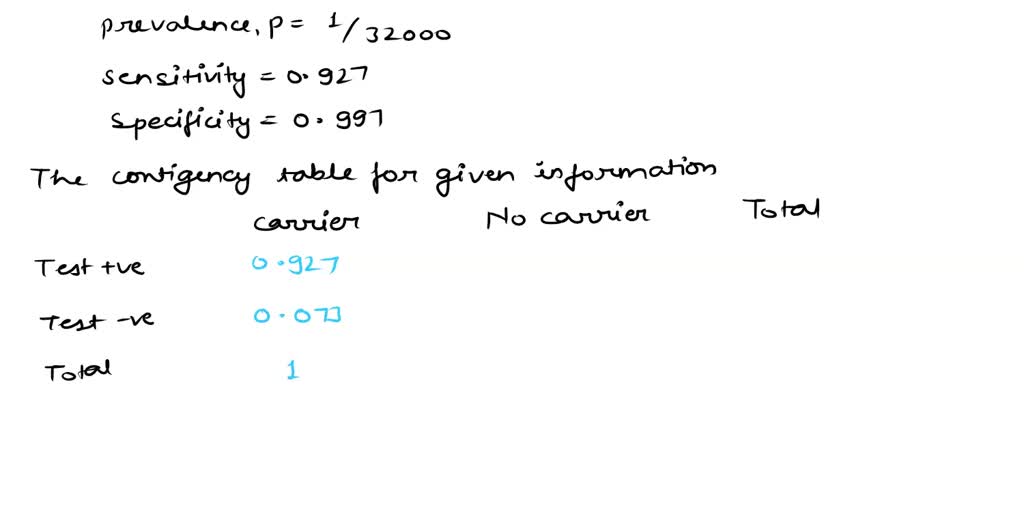 prevalence, p = 1/32000
sensitivity = 0.927
specificity = 0.997
The contigency table for given information
carrier No carrier Total
Test +ve 0.927
Test -ve 0.073
Total 1